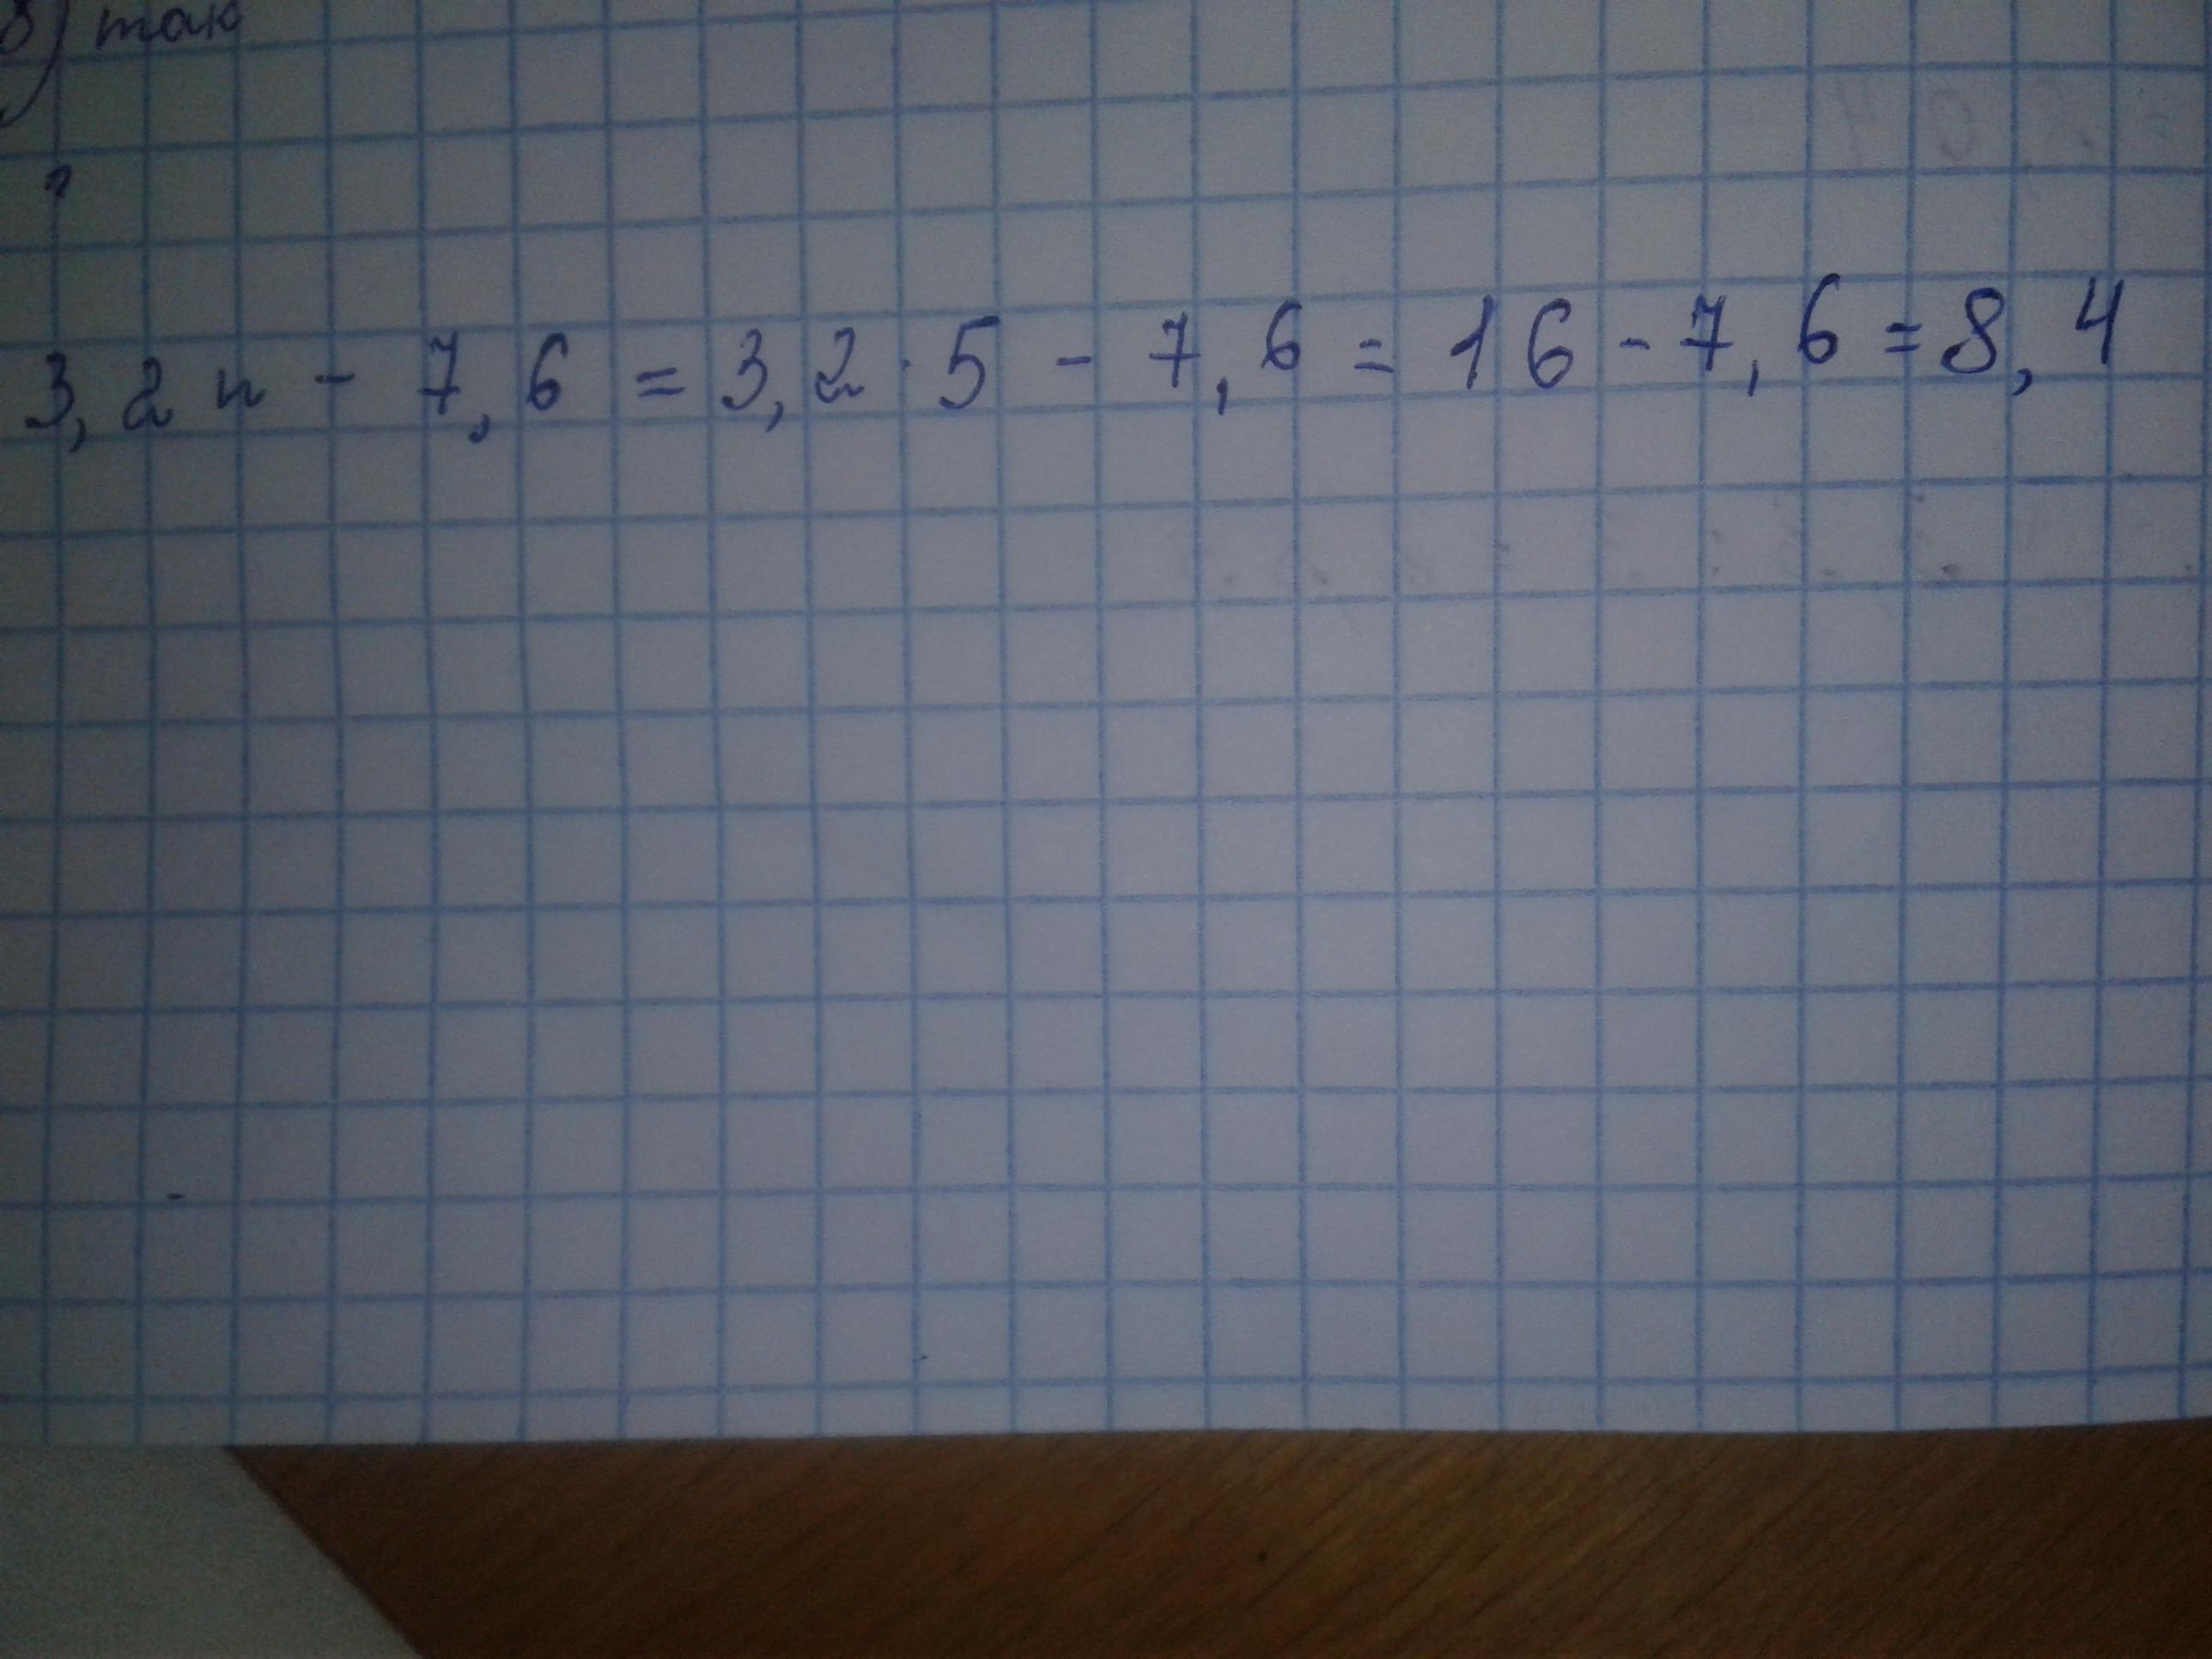 в) так
3,2n - 7,6 = 3,2 · 5 - 7,6 = 16 - 7,6 = 8,4